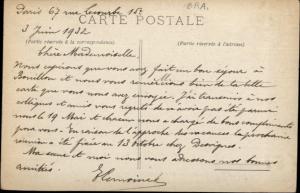 Paris 67 rue Lecourbe 15e
BRA.
CARTE POSTALE
3 Juin 1932
(Partie réservée à la correspondance)
(Partie réservée à l'adresse)
Chère Mademoiselle
Nous espérons que vous avez fait un bon séjour à
Bouillon et nous vous remercions bien de la belle
carte que vous nous avez envoyée. J'ai transmis à nos
collègues et amis vos regrets de n'avoir pas été parmi
nous le 19 Mai et chacun nous a chargé de bons compliments
pour vous. En raison de l'approche des vacances la prochaine
réunion a été fixée au 13 octobre chez
Ma sœur et moi nous vous adressons nos bonnes
amitiés.